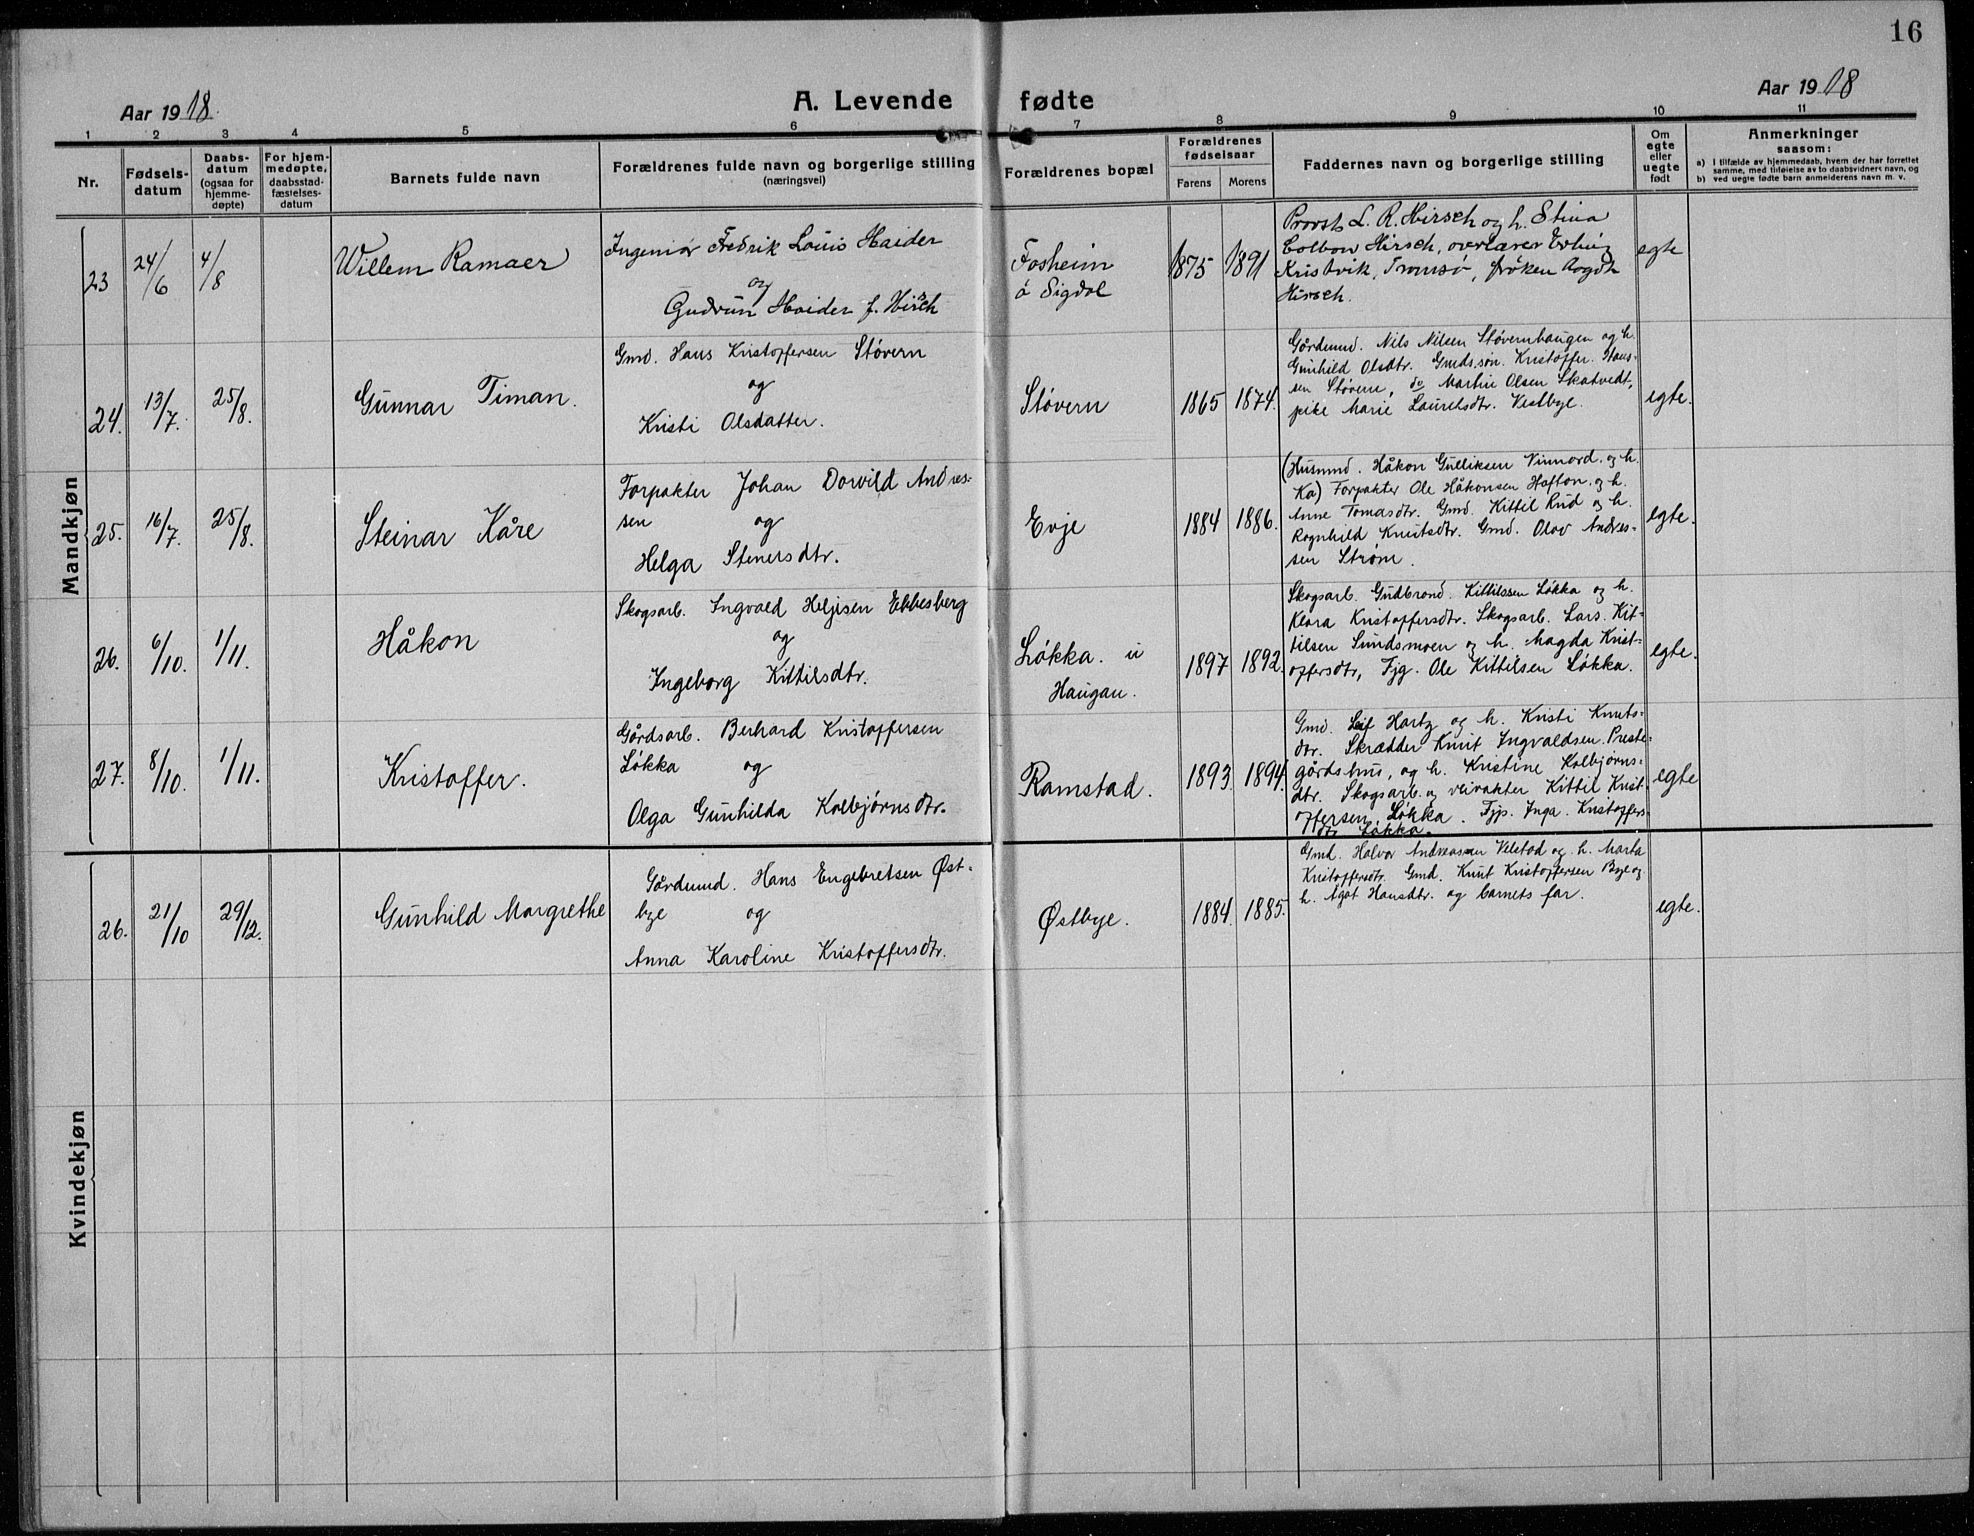 16
Aar 1918.
A. Levende fødte
Aar 1918
1 2 3 4 5 6 7 8 9 10 11
Nr.
Fødsels-
datum
Daabs-
datum
(ogsaa for
hjemme-
døpte)
For hjem-
medøpte,
daabsstad-
fæstelses-
datum
Barnets fulde navn
Forældrenes fulde navn og borgerlige stilling
(næringsvei)
Forældrenes bopæl
Forældrenes
fødselsaar
Farens Morens
Faddernes navn og borgerlige stilling
Om
egte
eller
uegte
født
Anmerkninger
saasom:
a) I tilfælde av hjemmedaab, hvem der har forrettet
samme, med tilføielse av to daabsvidners navn, og
b) ved uegte fødte barn anmelderens navn m. v.
Mandkjøn
23 24/6 4/8 Willem Ramaer
Ingeniør Fredrik Louis Haider
og
Gudrun Haider f. Hirsch
Fosheim
i Sigdal
1875 1891
Provst L. R. Hirsch og h. Stina
Colban Hirsch, overlærer Erling
Kristvik, Tromsø, frøken Aagot
Hirsch.
egte
24. 13/7. 25/8. Gunnar Timan.
Gmd. Hans Kristoffersen Støvern
og
Kristi Olsdatter.
Støvern
1865 1874.
Gårdmd. Nils Nilsen Støvernhaugen og h.
Gunhild Olsdtr. Gmds.søn. Kristoffer Han-
sen Støvern, do Martin Olsen Skatvedt,
pike Marie Lauritsdtr. Vestbye.
egte.
25. 16/7. 25/8. Steinar Kåre
Forpakter Johan Dorvild Andres-
sen og
Helga Stenersdtr.
Evje
1884 1886.
(Husmd. Håkon Gulliksen Vinnord. og h.
Ka) Forpakter Ole Håkonsen Hafton. og h.
Anne Tomasdtr. Gmd. Kittil Rud og h.
Ragnhild Knutsdtr. Gmd. Olav Andres-
sen Strøm.
egte.
26. 6/10. 1/11. Håkon
Skogsarb. Ingvald Helgesen Ekkesberg
og
Ingeborg Kittilsdtr.
Løkka. u
Haugan.
1897 1892.
Skogsarb. Gudbrand. Kittilssen Løkka og h.
Klara Kristoffersdtr. Skogsarb. Lars. Kit-
tilsen Sundsmoen og h. Magda Krist-
offersdtr, Fjg. Ole Kittilsen Løkka.
egte.
27. 8/10. 1/11. Kristoffer.
Gårdsarb. Berhard Kristoffersen
Løkka og
Olga Gunhilda Kolbjørnsdtr.
Ramstad.
1893. 1894.
Gmd. Leif Hartz og h. Kristi Knuts-
dtr. Skrædder Knut Ingvaldsen Preste-
gårdshus, og h. Kristine Kolbjørns-
dtr. Skogsarb. og veivakter Kittil Krist-
offersen. Løkka. Fjp. Inga. Kristoffers-
dtr. Løkka.
egte
Kvindekjøn
26. 21/10 29/12. Gunhild Margrethe
Gårdmd. Hans Engebretsen Øst-
bye og
Anna Karoline Kristoffersdtr.
Østbye.
1884. 1885.
Gmd. Halvor Andreassen Velstad og h. Marta
Kristoffersdtr. Gmd. Knut Kristoffersen Bye og
h. Agot Hansdtr. og barnets far.
egte.